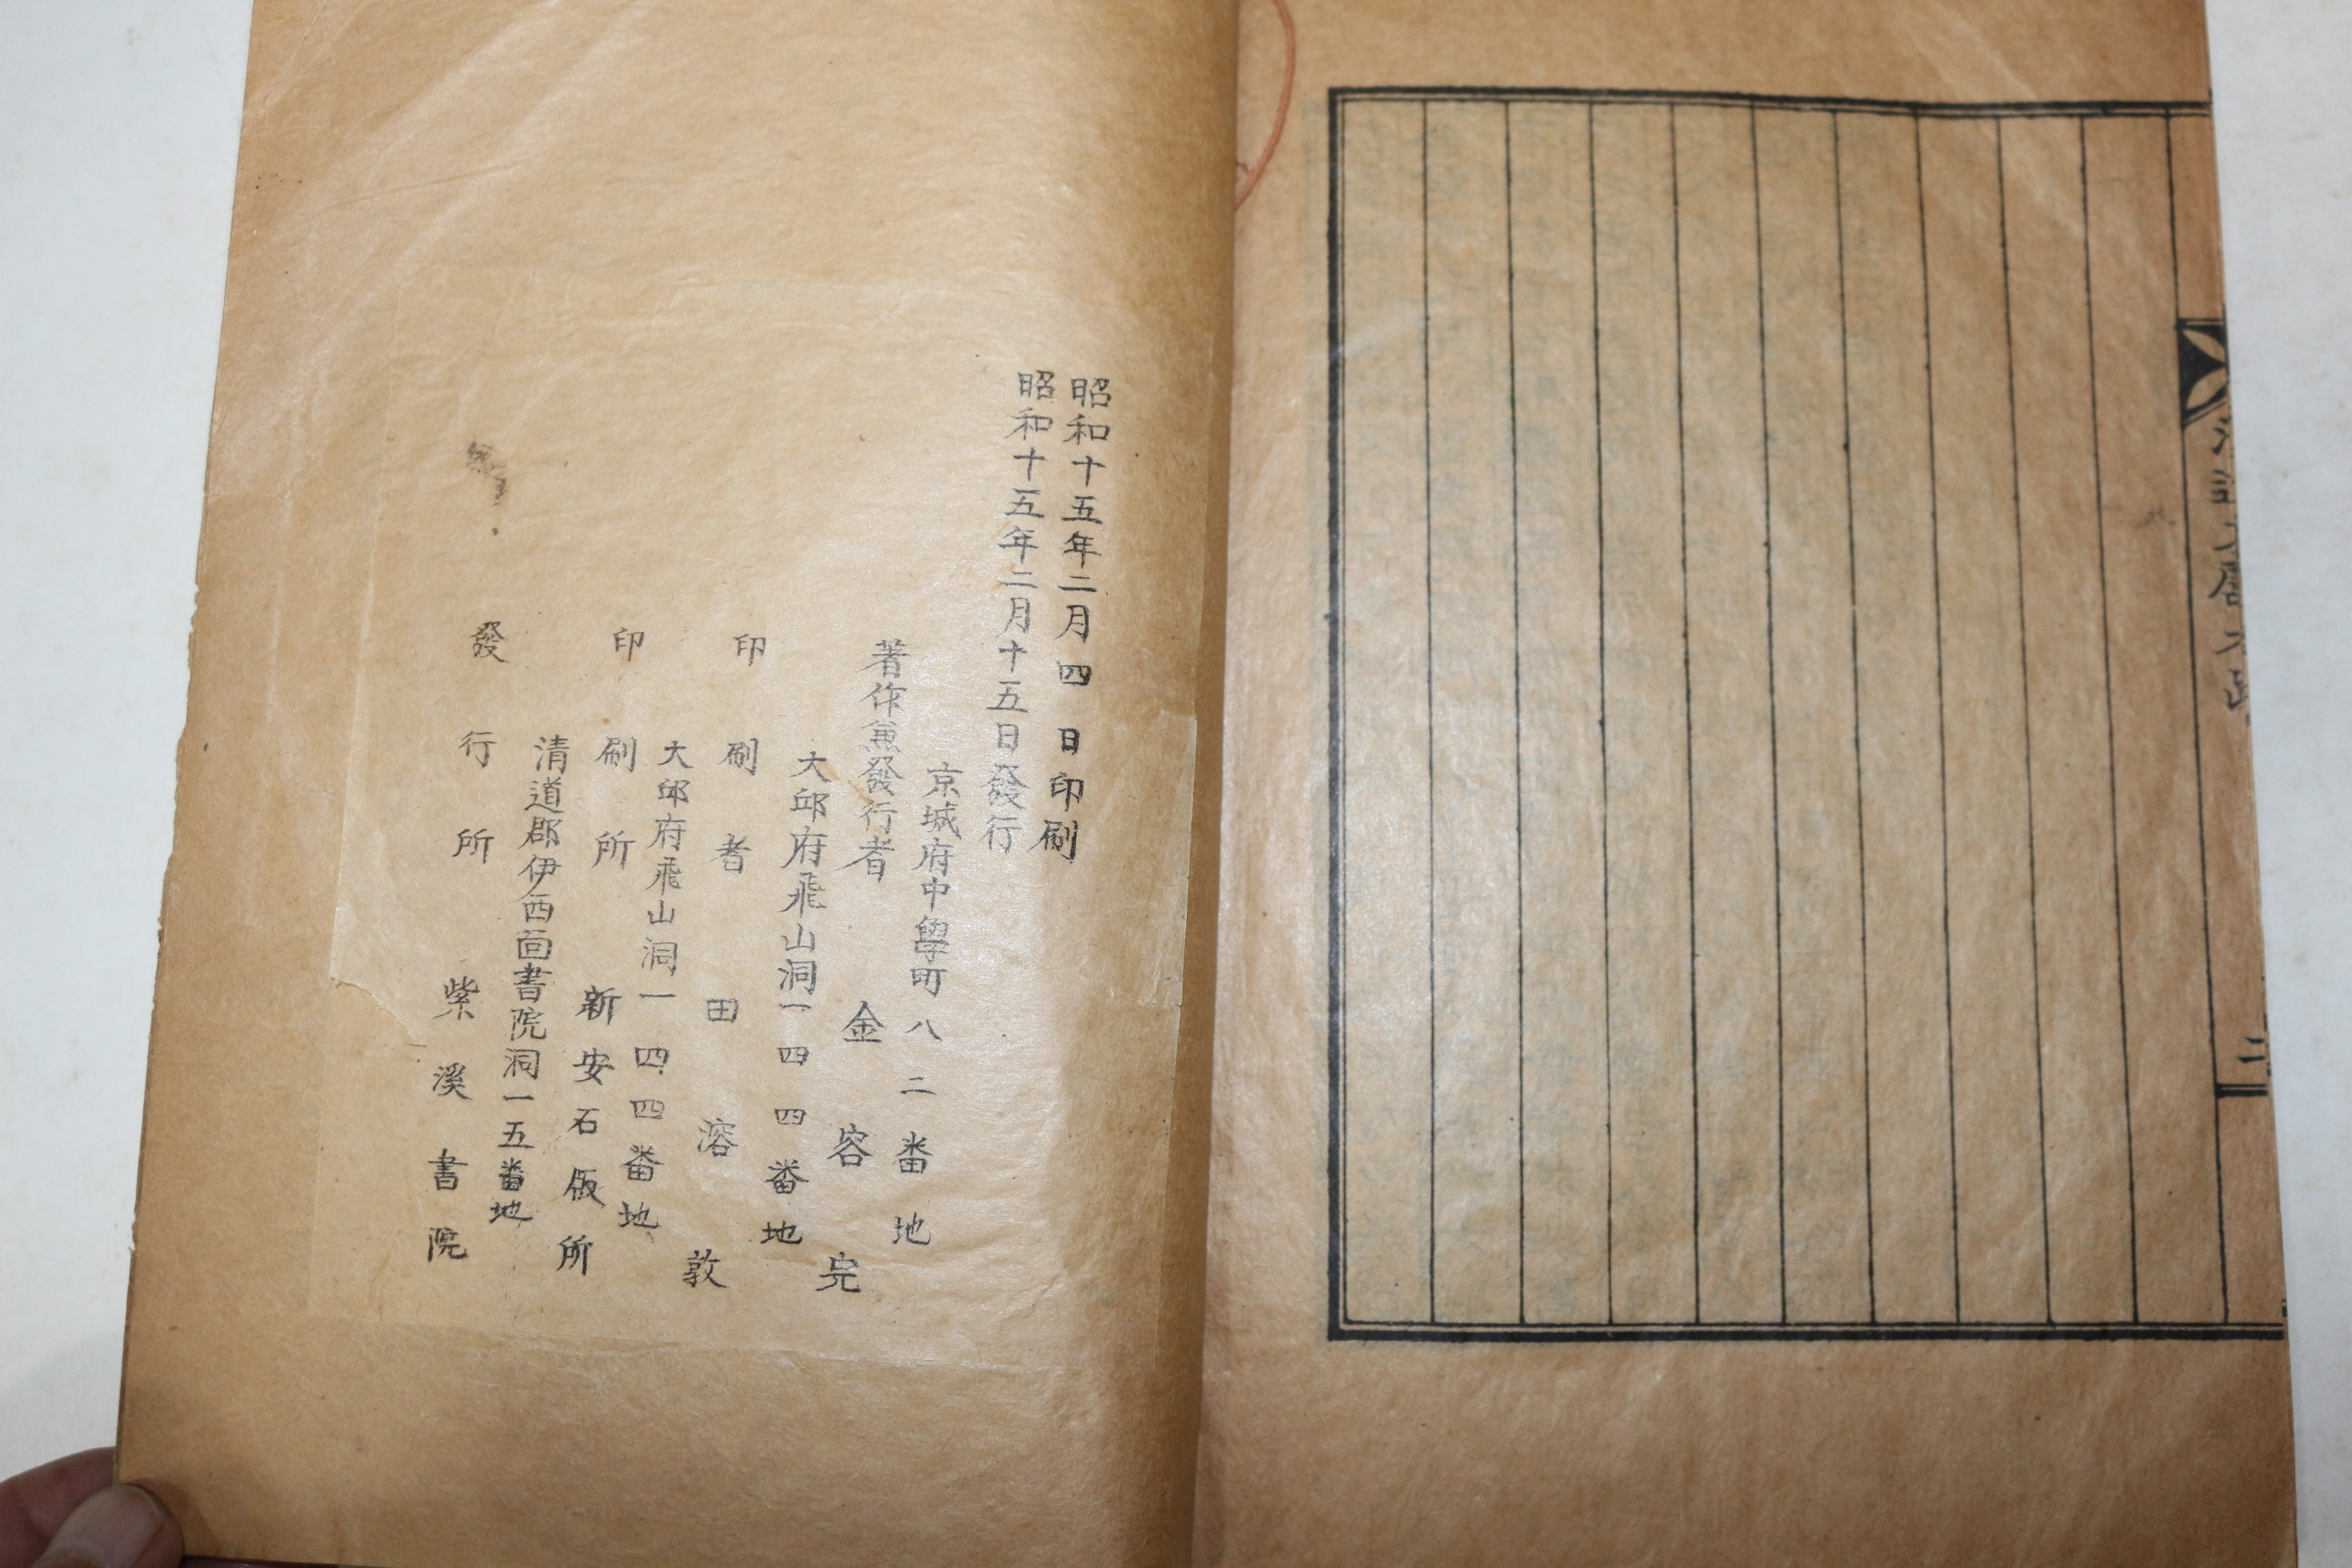 昭和十五年二月四日印刷
昭和十五年二月十五日發行
京城府中學町八二番地
著作兼發行者 金容完
大邱府飛山洞一四四番地
印刷者 田溶敦
大邱府飛山洞一四四番地
印刷所 新安石版所
清道郡伊西面書院洞一五番地
發行所 紫溪書院